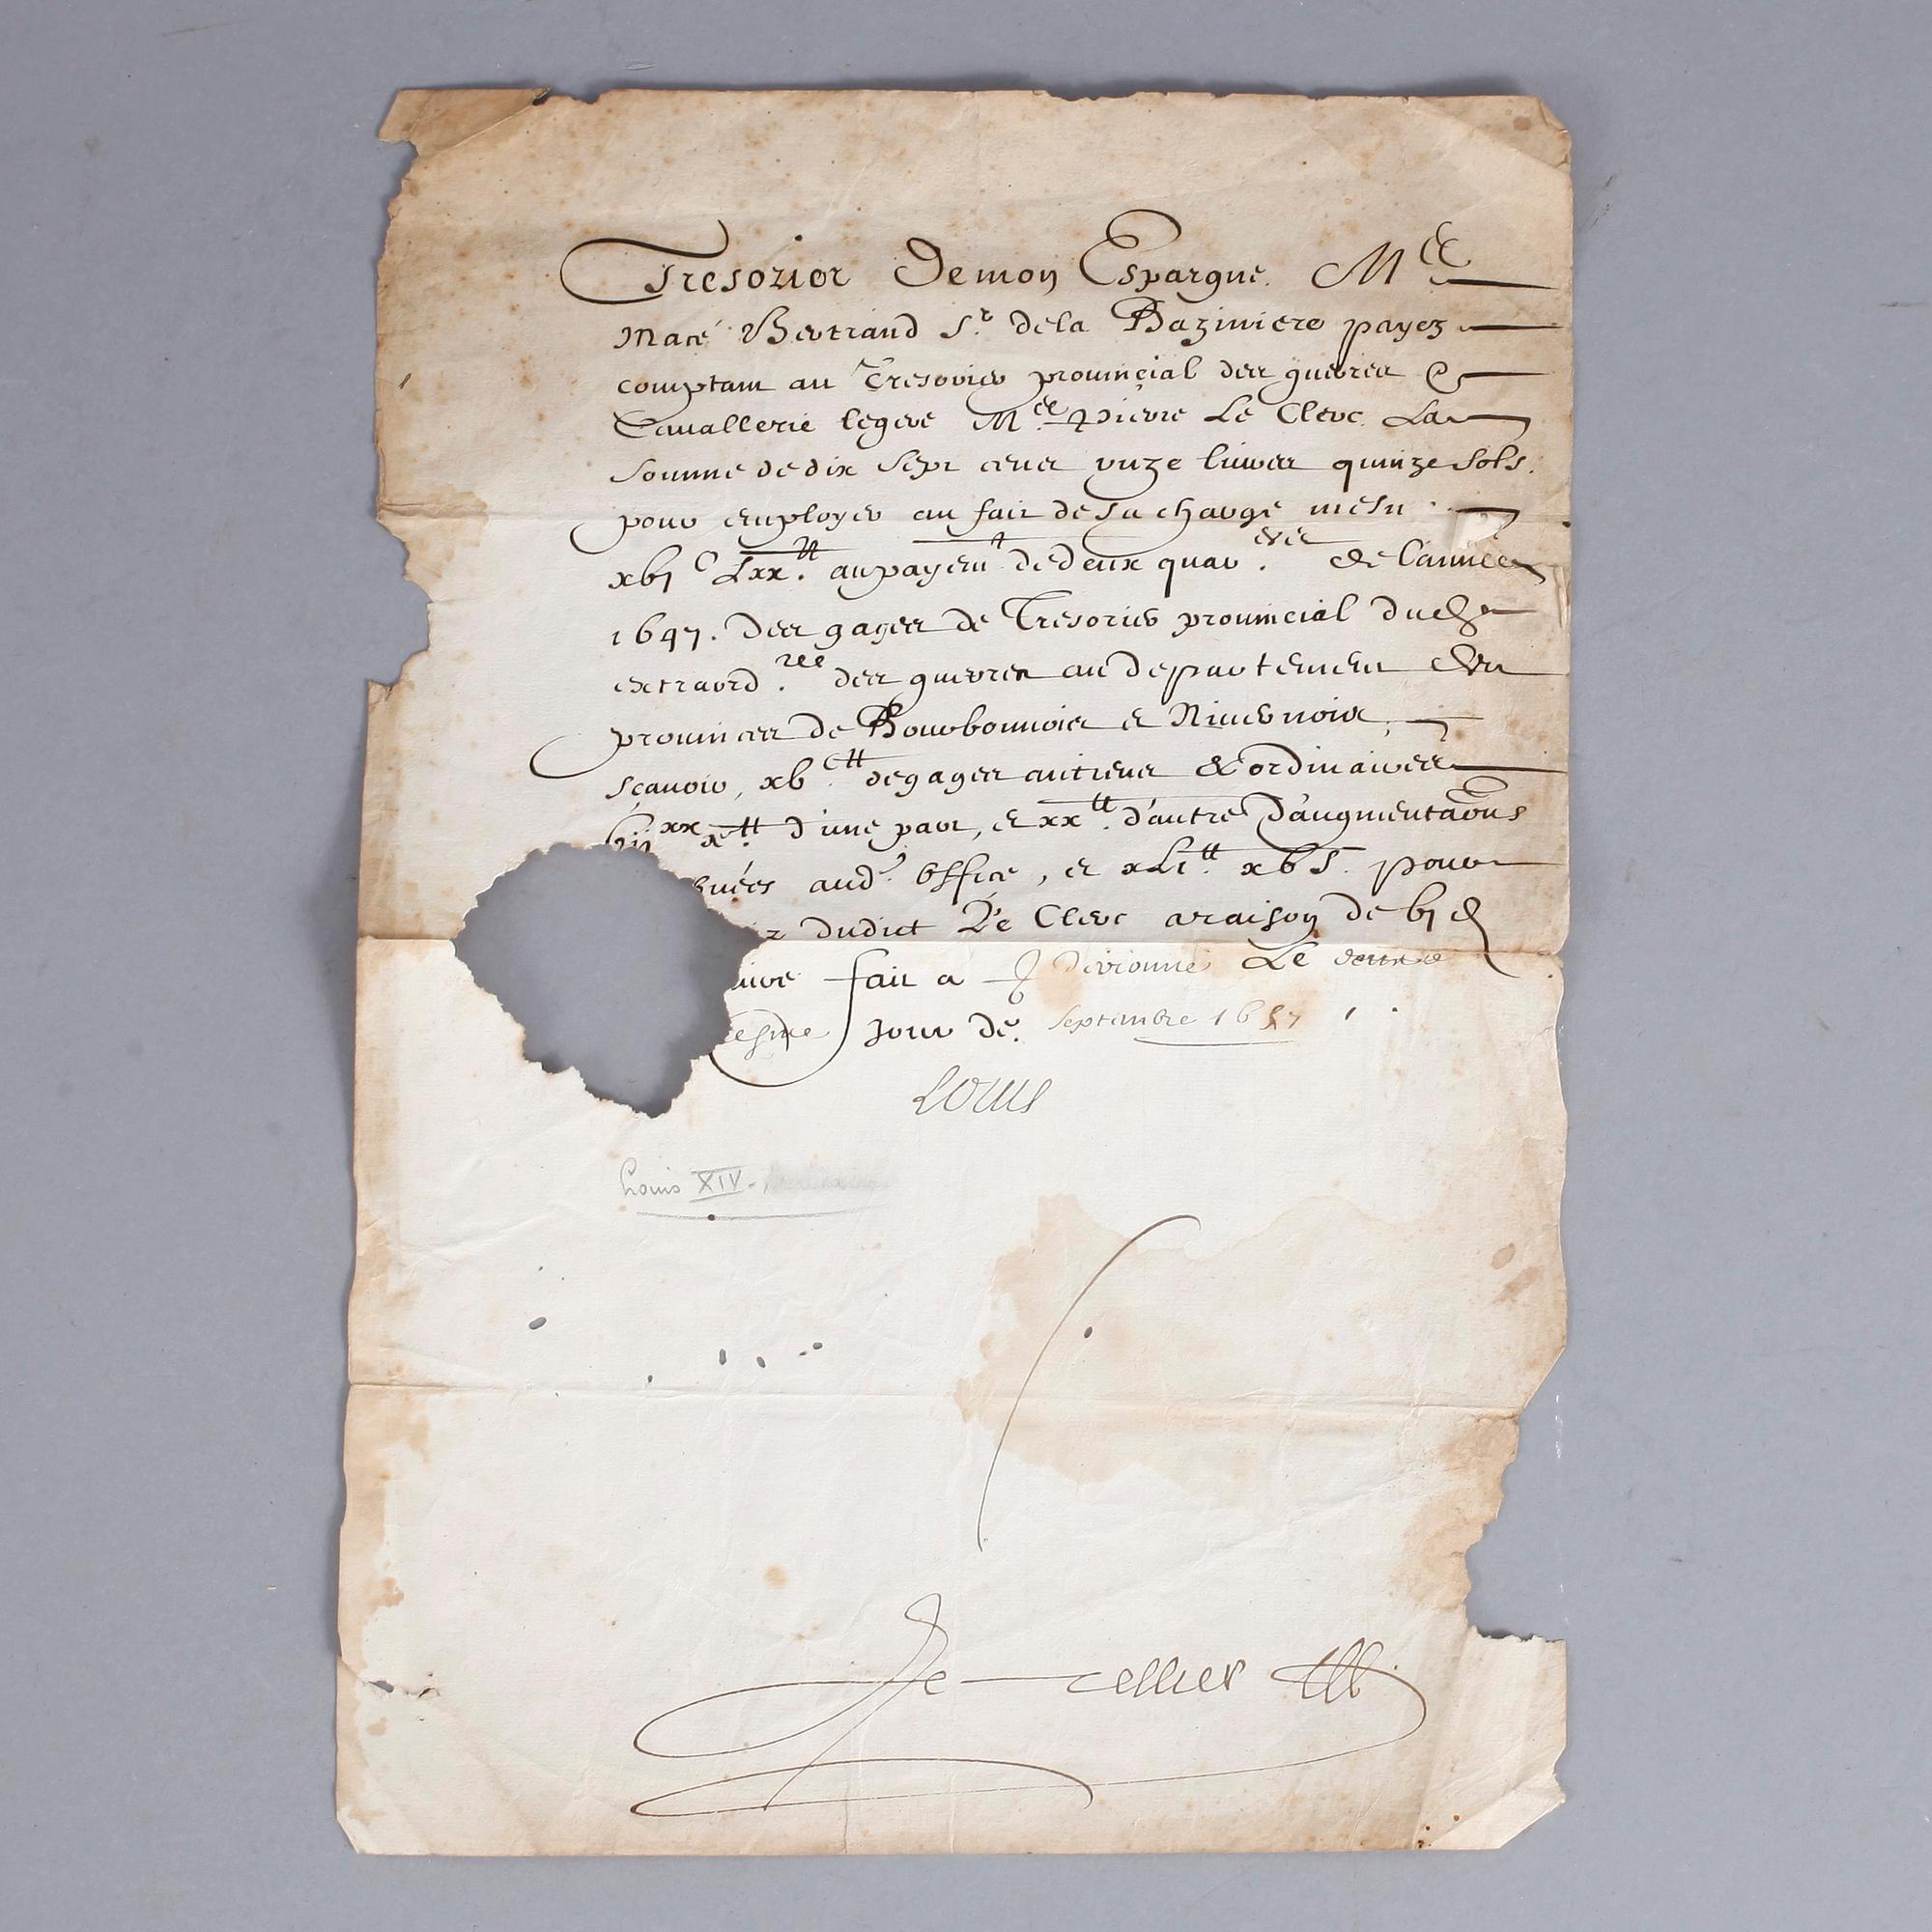 Tresorier de mon Espargne. M.re
Macé Bertrand S.r de la Baziniere payez
comptant au Tresorier prouincial des guerres &
Cauallerie legere M.re Pierre Le Clerc. La
Somme de dix sept cens unze liures quinze sols.
pour employer au fait de sa charge mesm
xbj C Lxx.tt au payem.t de deux quar.ers de l'année
1647. des gages de Tresorier prouincial de l'
extraord.re des guerres au departement des
prouinces de Bourbonnois et Niuernois,
sçauoir, xb.C tt de gages antiens & ordinaires
bij xx x.tt d'une part, et xx.tt d'autre d'augmentaons
buées aud.' Office, et xLi.tt xb s. pour
dudict Le Clerc a raison de bj d
liure fait a Le
esme Jour de. Septembre 1657
Louis
Louis XIV.
Le Tellier